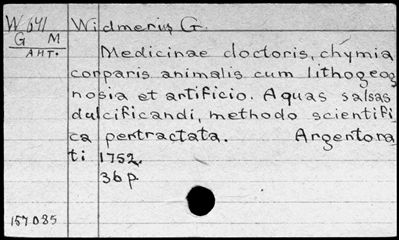 W 641 Widmeris G.
G M
АНТ. Medicinae doctoris, chymia
corparis animalis cum lithogeog
nosia et artificio. Aquas salsas
dulcificandi, methodo scientifi
ca pentractata. Argentora
ti 1752.
36 p.
157085